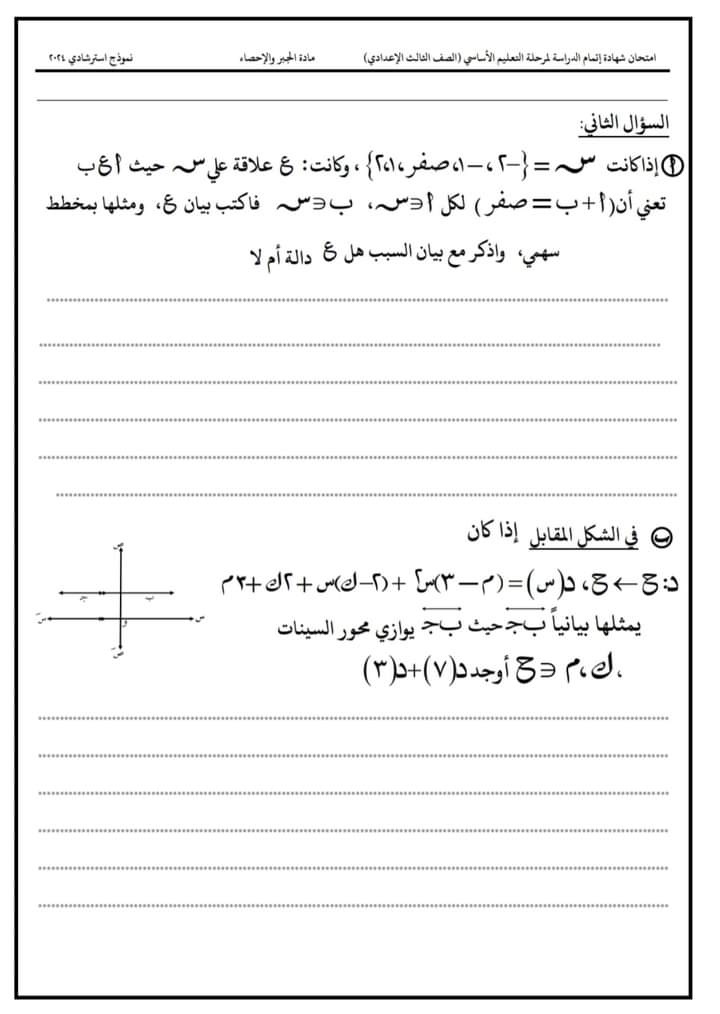 امتحان شهادة إتمام الدراسة لمرحلة التعليم الأساسي (الصف الثالث الإعدادي) مادة الجبر والإحصاء نموذج استرشادي ٢٠٢٤
السؤال الثاني:
أ إذا كانت س = {-٢، -١، صفر، ١، ٢}، وكانت: ع علاقة علي س حيث أ ع ب
تعني أن (أ + ب = صفر) لكل أ ∈ س، ب ∈ س فاكتب بيان ع، ومثلها بمخطط
سهمي، واذكر مع بيان السبب هل ع دالة أم لا
ب في الشكل المقابل إذا كان
د: ح ← ح، د(س) = (م – ٣)س٢ + (٢–ك)س + ٢ك + ٣م
يمثلها بيانياً ب جـ حيث ب جـ يوازي محور السينات
، ك، م ∈ ح أوجد د(٧) + د(٣)
صَ
جـ
ب
سَ
و
س
صَ